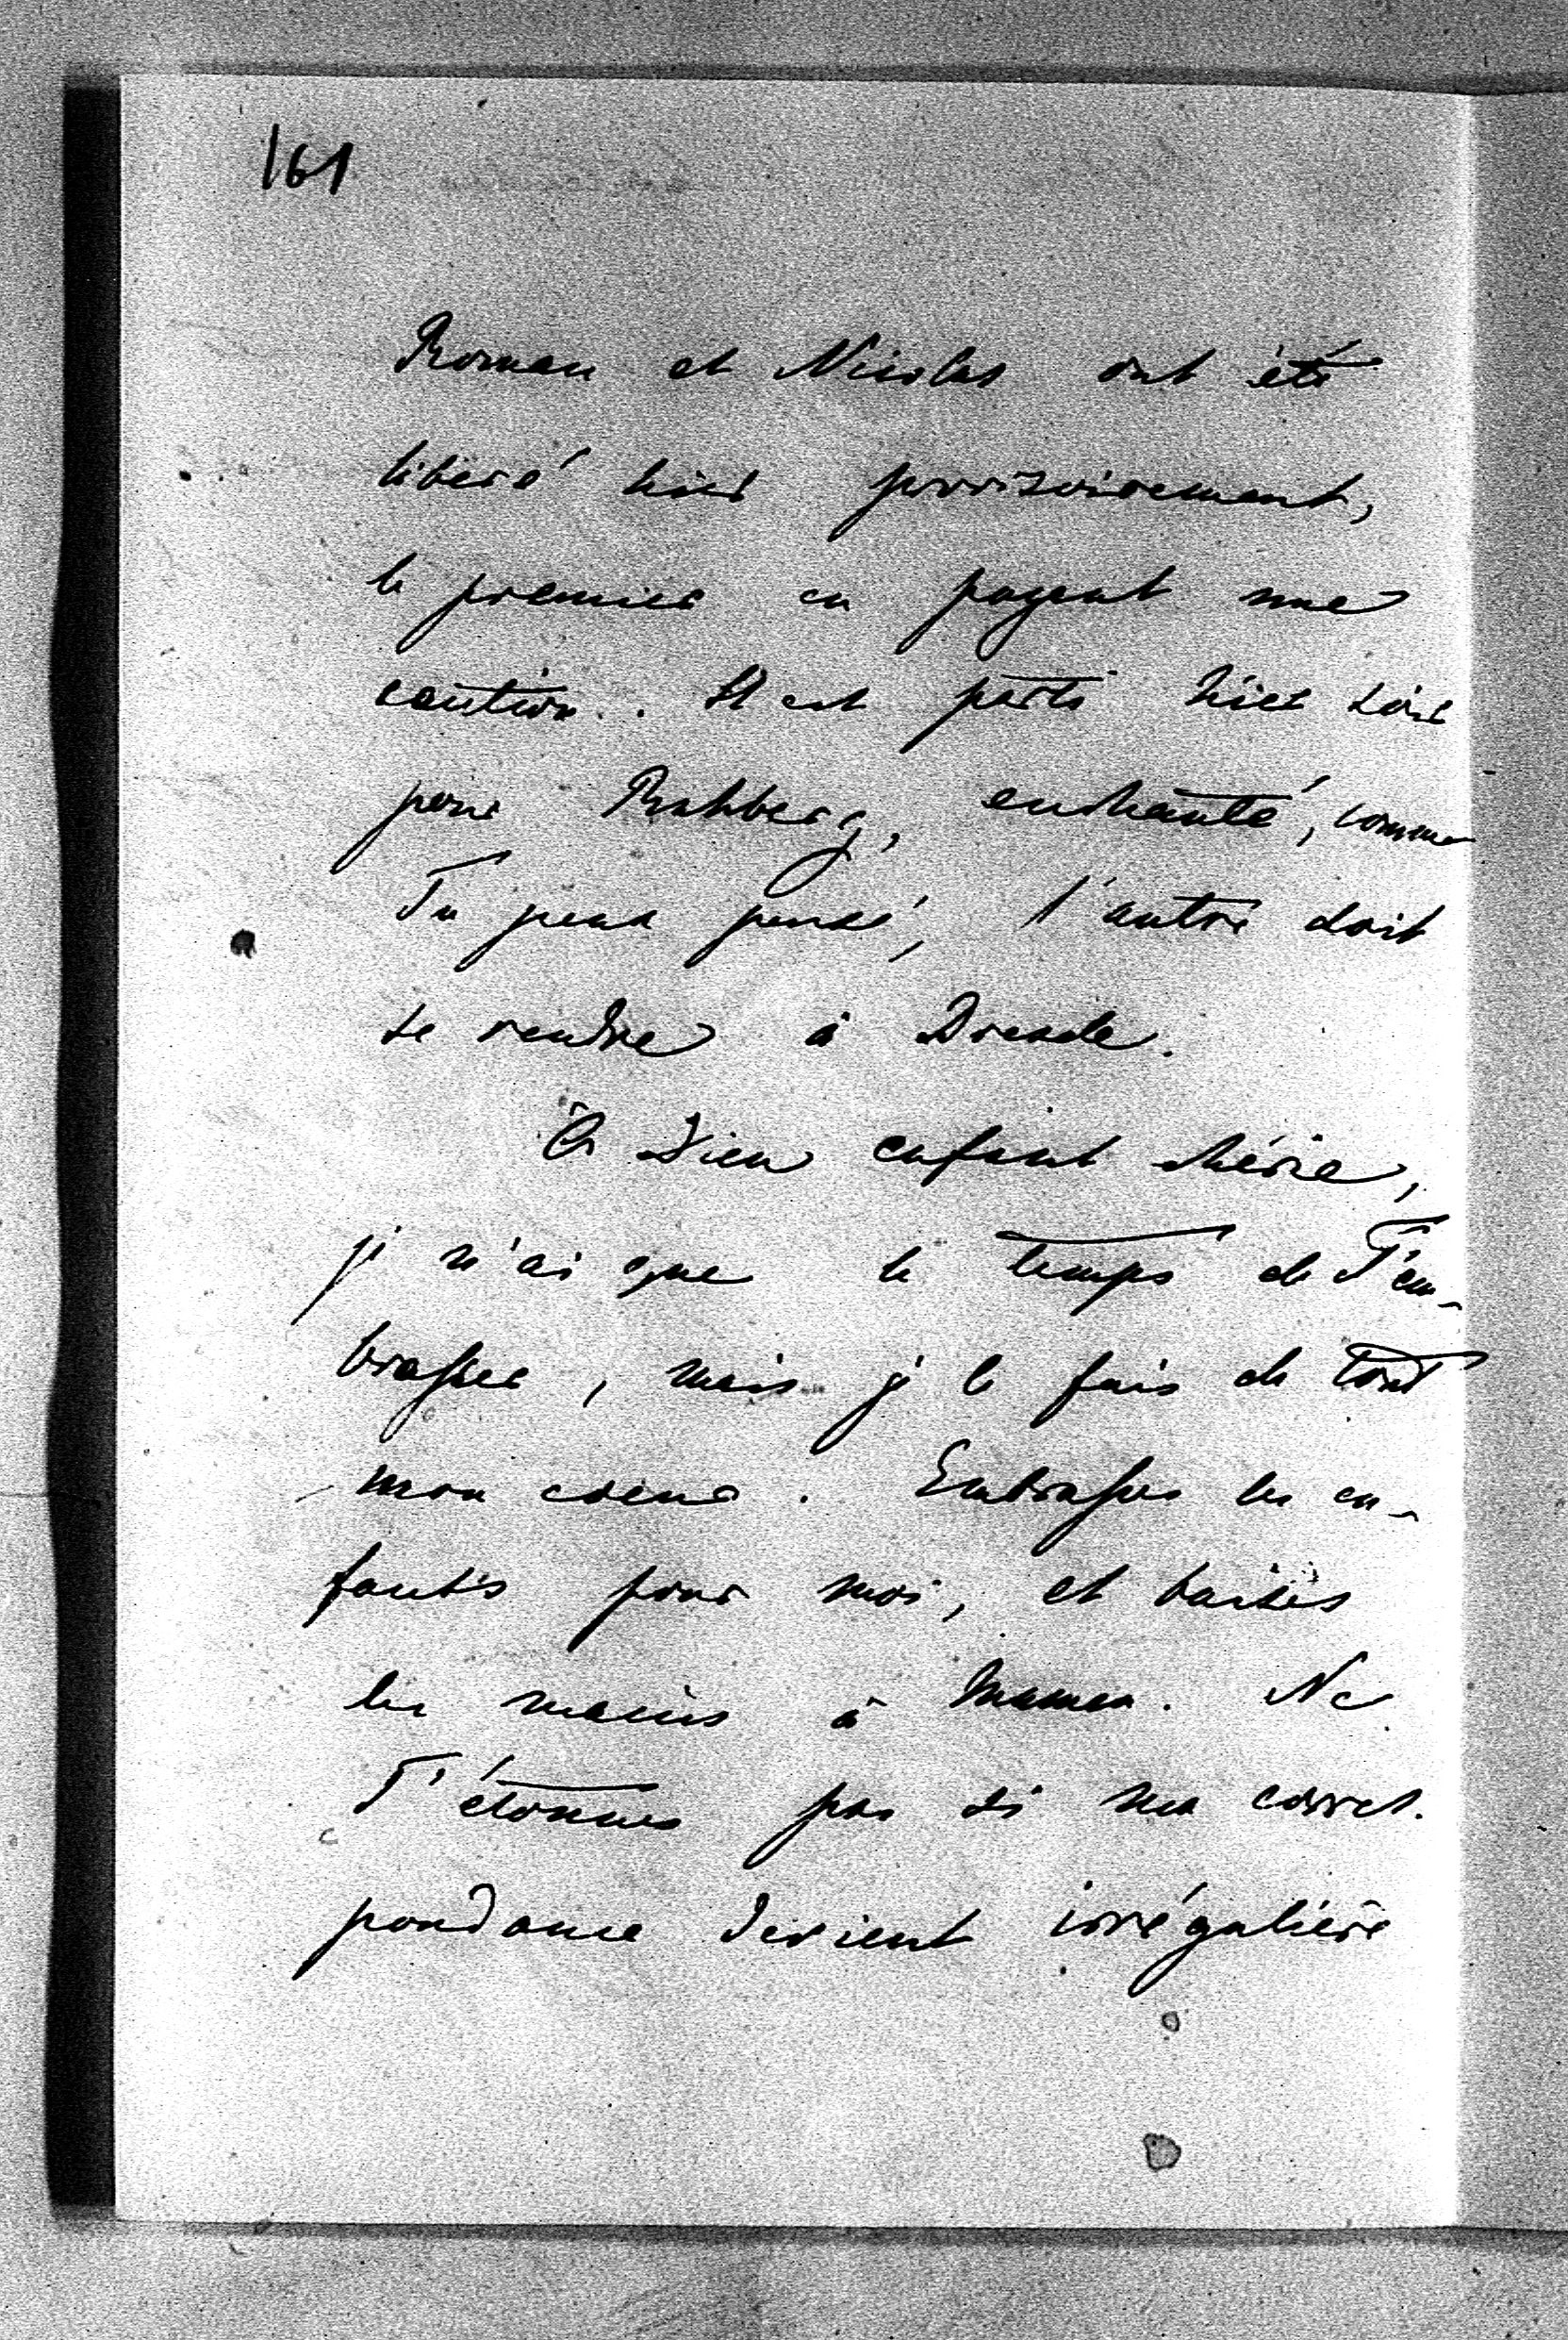 161
Roman et Nicolas ont été
libéré hier provisoirement,
le premier en payant une
caution. Il est parti hier soir
pour Ruhberg, enchanté, comme
Tu peux pensé, l'autre doit
se rendre à Dresde.
À Dieu enfant chérie,
je n'ai que le temps de T'em-
brasser, mais je le fais de tout
mon coeur. Embrasses les en-
fants pour moi, et baises
les mains à Maman. Ne
T'étonnes pas si ma corres-
pondance devient irrégulière